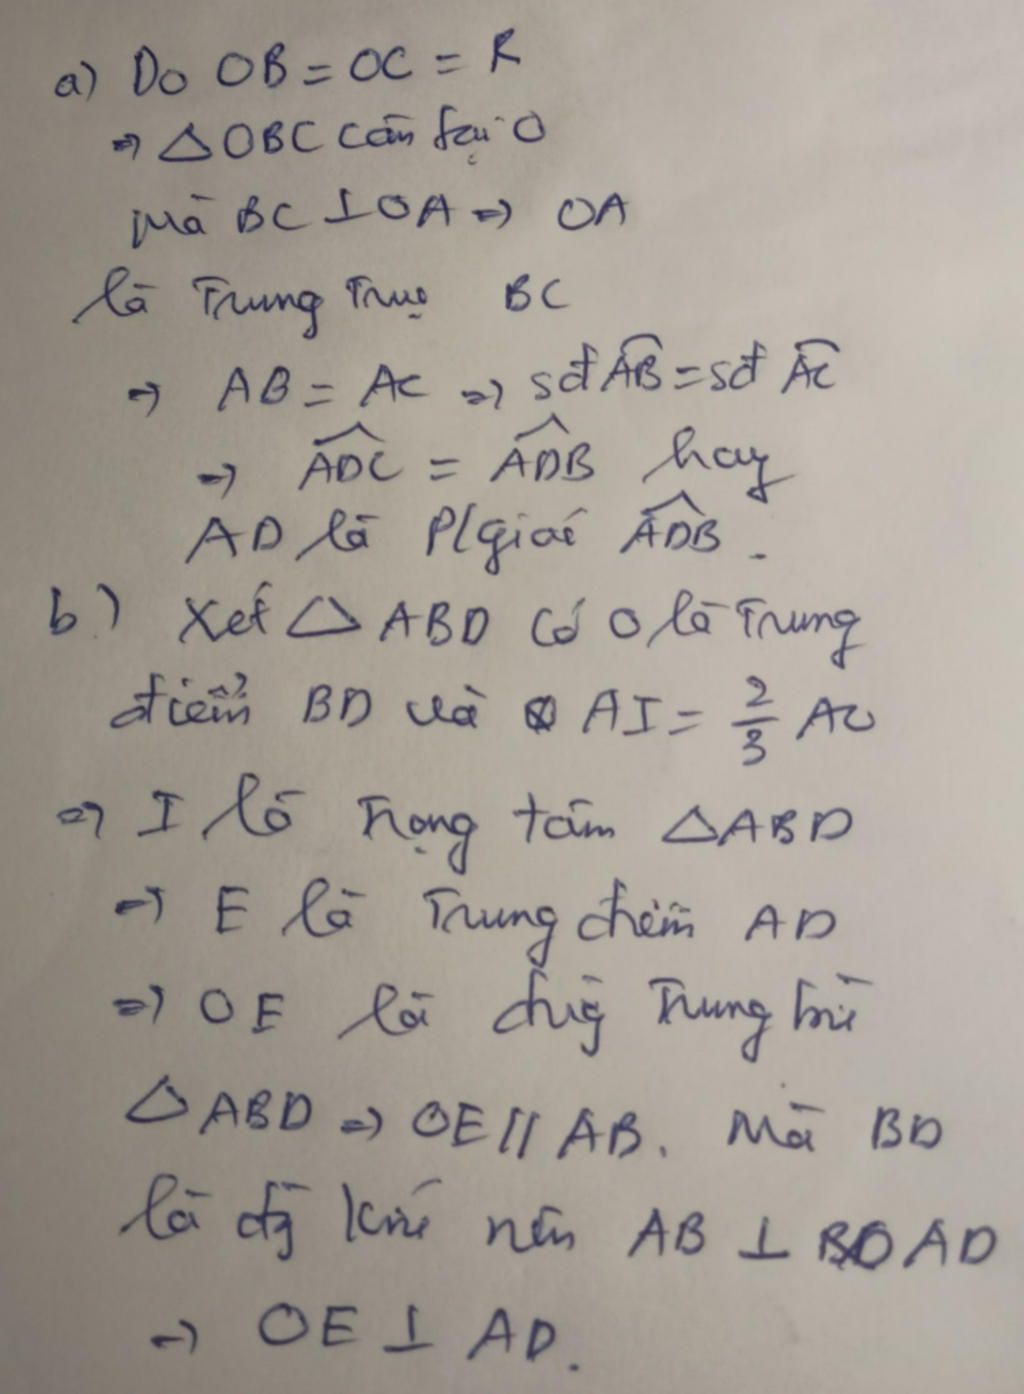 a) Do OB = OC = R
⇒ △OBC cân tại O
Mà BC ⊥ OA ⇒ OA
là Trung Trực BC
⇒ AB = AC ⇒ sđ \widehat{AB} = sđ \widehat{AC}
⇒ \widehat{ADC} = \widehat{ADB} hay
AD là P/giác \widehat{ADB}.
b) Xét △ABD có O là Trung
điểm BD và AI = \frac{2}{3} AO
⇒ I là Trọng tâm △ABD
⇒ E là Trung điểm AD
⇒ OE là đường Trung bình
△ABD ⇒ OE // AB. Mà BD
là đg kính nên AB ⊥ AD
⇒ OE ⊥ AD.